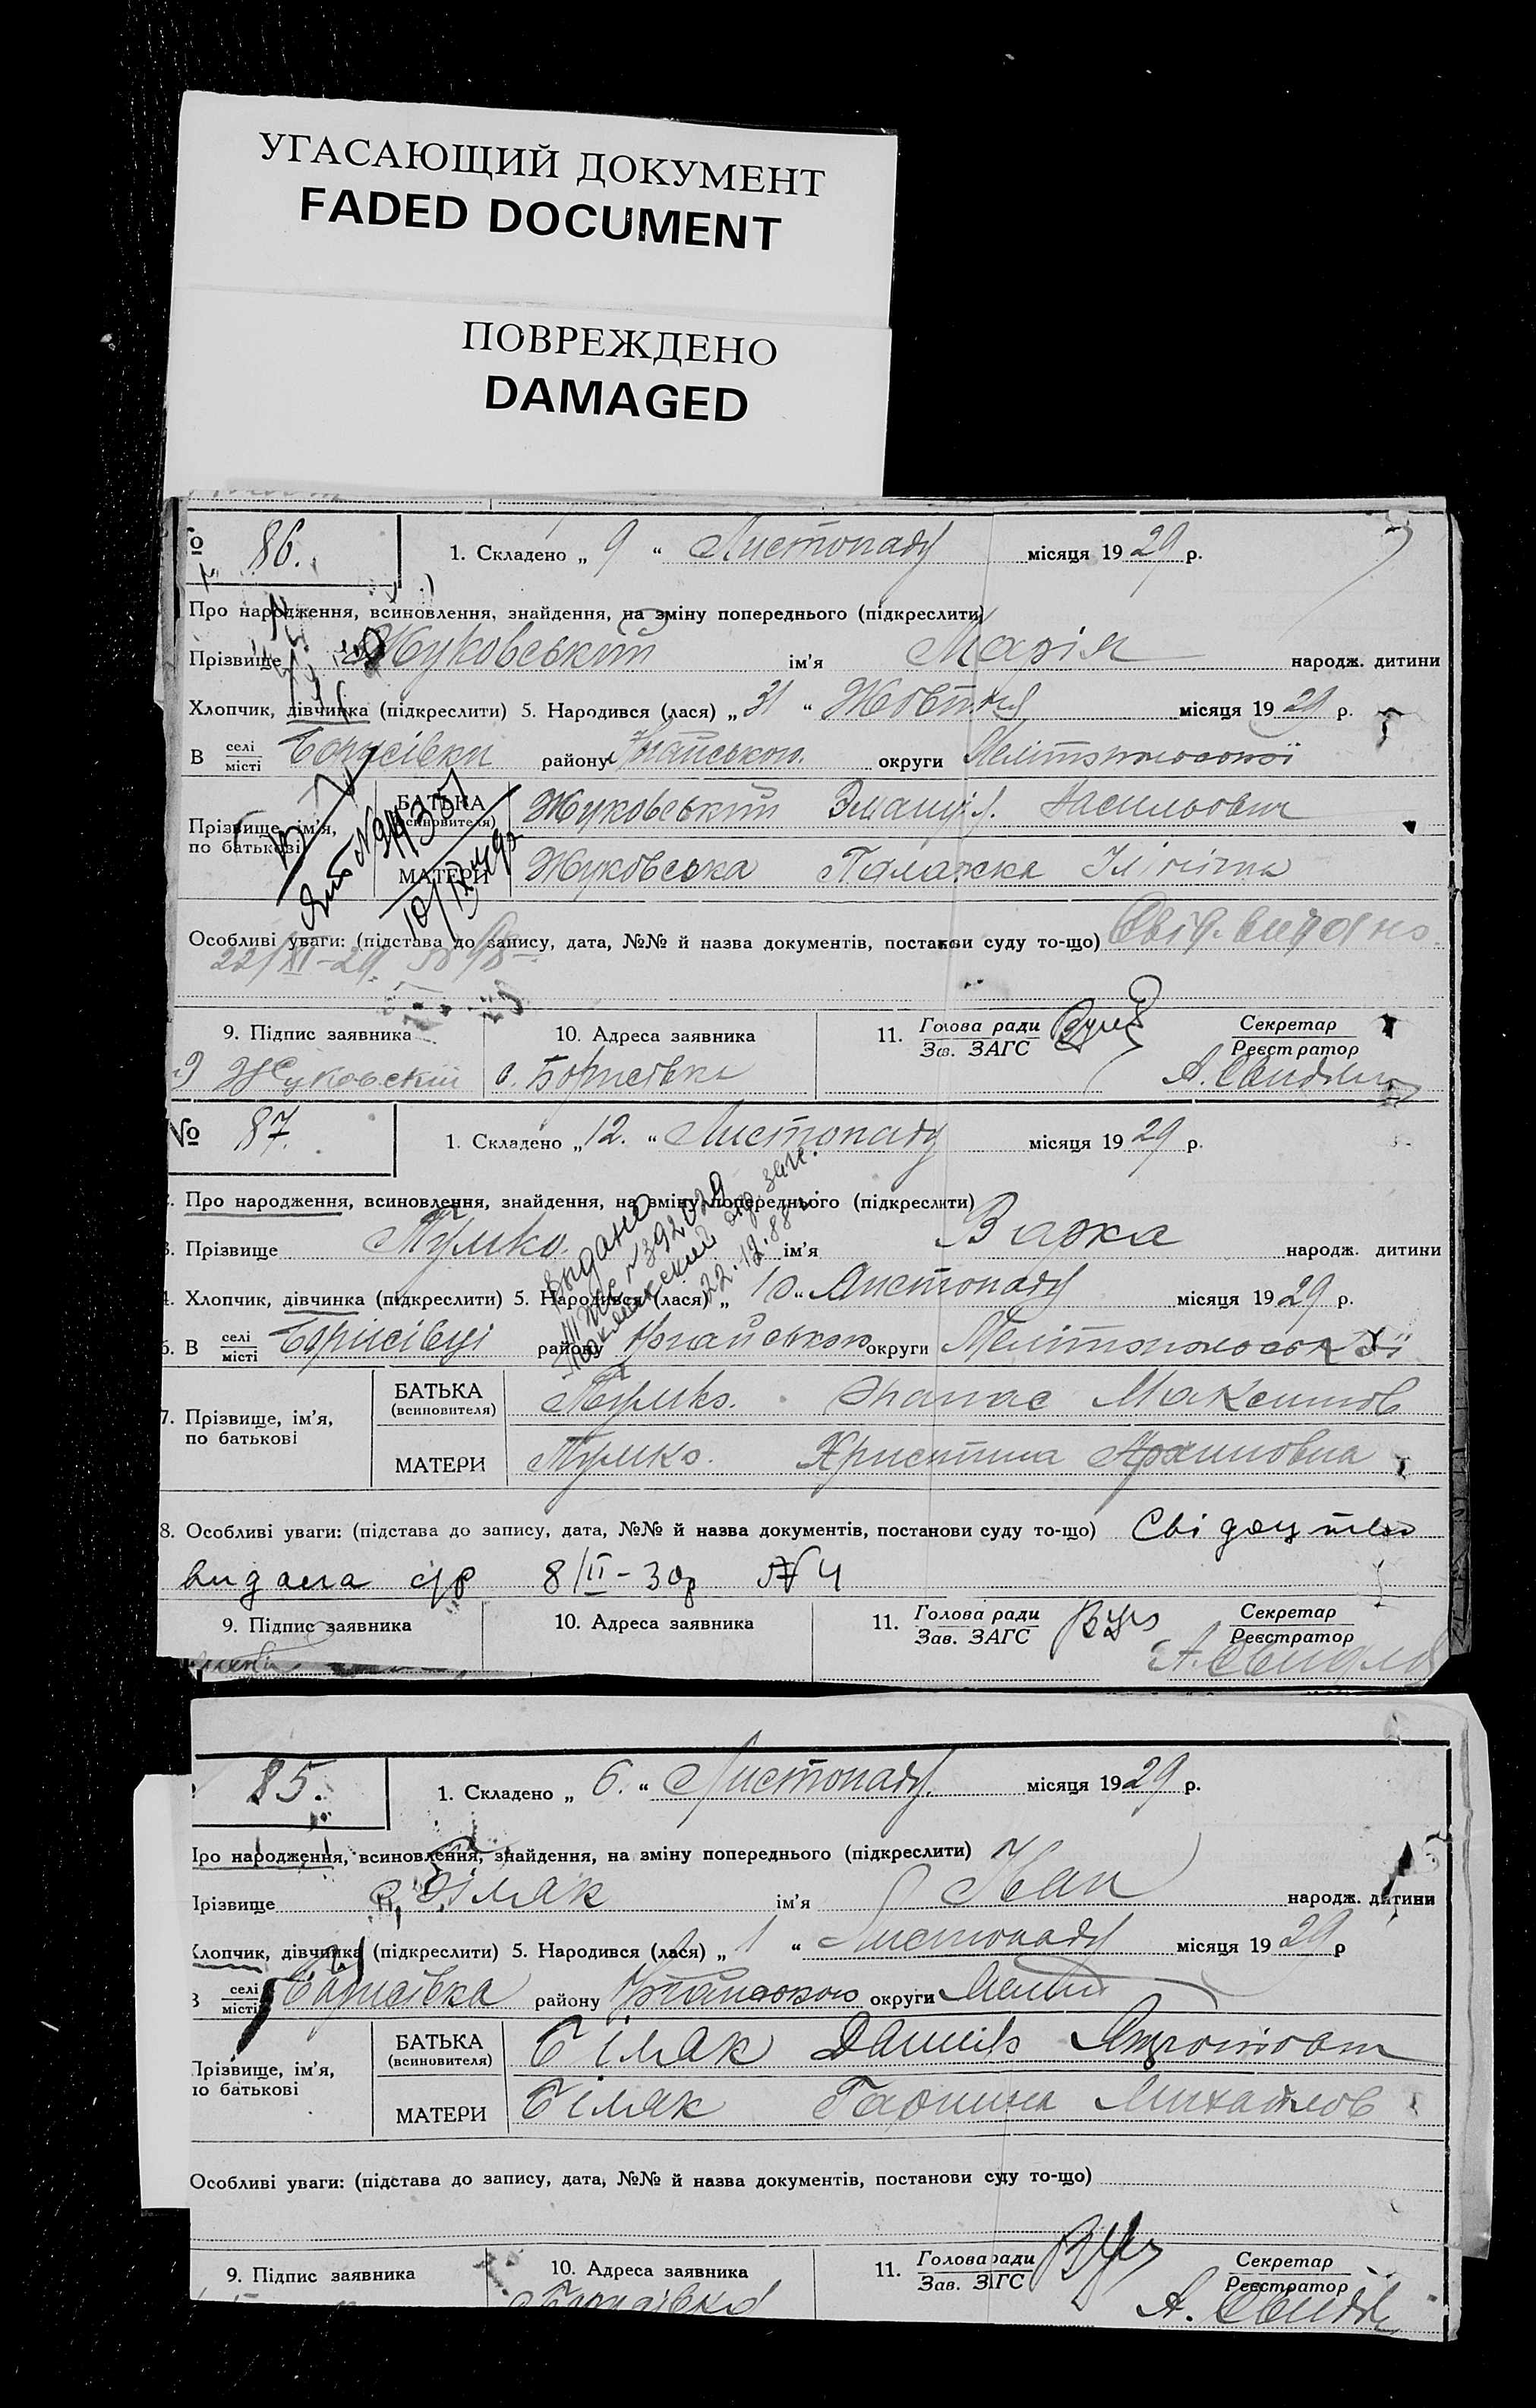 УГАСАЮЩИЙ ДОКУМЕНТ
FADED DOCUMENT
ПОВРЕЖДЕНО
DAMAGED
№ 86. 1. Складено „ 9 “ Листопаду місяця 1929 р.
Про народження, всиновлення, знайдення, на зміну попереднього (підкреслити)
Прізвище Жуковський ім'я Марія народж. дитини
Хлопчик, дівчинка (підкреслити) 5. Народився (лася) „ 31 “ Жовтня місяця 1929 р.
В селі місті Борисівки району округи
Прізвище, ім'я, по батькові
БАТЬКА (всиновителя) Жуковський
МАТЕРИ Жуковська Палажка
10/IX
Особливі уваги: (підстава до запису, дата, №№ й назва документів, постанови суду то-що) Свід. видано
22/XI-29
9. Підпис заявника 10. Адреса заявника 11. Голова ради Зав. ЗАГС Секретар Реєстратор
Жуковский с. Борисівка
№ 87. 1. Складено „ 12. “ Листопаду місяця 1929 р.
2. Про народження, всиновлення, знайдення, на зміну попереднього (підкреслити)
3. Прізвище ім'я Варка народж. дитини
4. Хлопчик, дівчинка (підкреслити) 5. Народився (лася) „ 10 “ Листопаду місяця 1929 р.
6. В селі місті Борисівці району Ногайського округи Мелітопольської
7. Прізвище, ім'я, по батькові
БАТЬКА (всиновителя) Максимов
МАТЕРИ Христина
22.12.88
8. Особливі уваги: (підстава до запису, дата, №№ й назва документів, постанови суду то-що) Свідоцтво
видала с/р 8/II-30р № 4
9. Підпис заявника 10. Адреса заявника 11. Голова ради Зав. ЗАГС Секретар Реєстратор
85. 1. Складено „ 6. “ Листопаду місяця 1929 р.
Про народження, всиновлення, знайдення, на зміну попереднього (підкреслити)
Прізвище Біляк ім'я Іван народж. дитини
Хлопчик, дівчинка (підкреслити) 5. Народився (лася) „ 1 “ Листопаду місяця 1929 р
В селі місті Борисівка району Ногайського округи
Прізвище, ім'я, по батькові
БАТЬКА (всиновителя) Біляк Данило
МАТЕРИ Біляк Горпина Михайлов
Особливі уваги: (підстава до запису, дата, №№ й назва документів, постанови суду то-що)
9. Підпис заявника 10. Адреса заявника 11. Голова ради Зав. ЗАГС Секретар Реєстратор
Борисівка